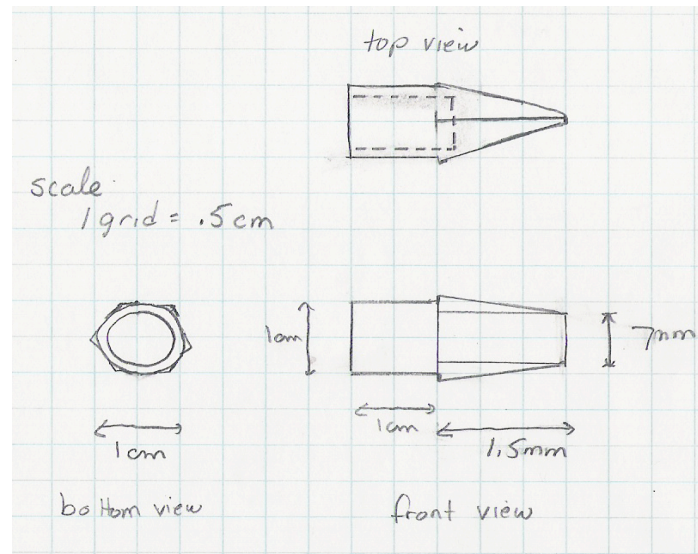 top view
scale
1 grid = .5cm
1cm
7mm
1cm
1cm
1.5mm
bottom view
front view